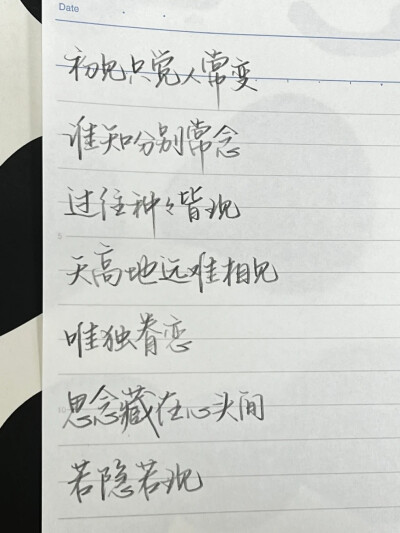 Date
初见只觉人常变
谁知分别常念
过往种々皆现
天高地远难相见
唯独眷恋
思念藏在心头间
若隐若现